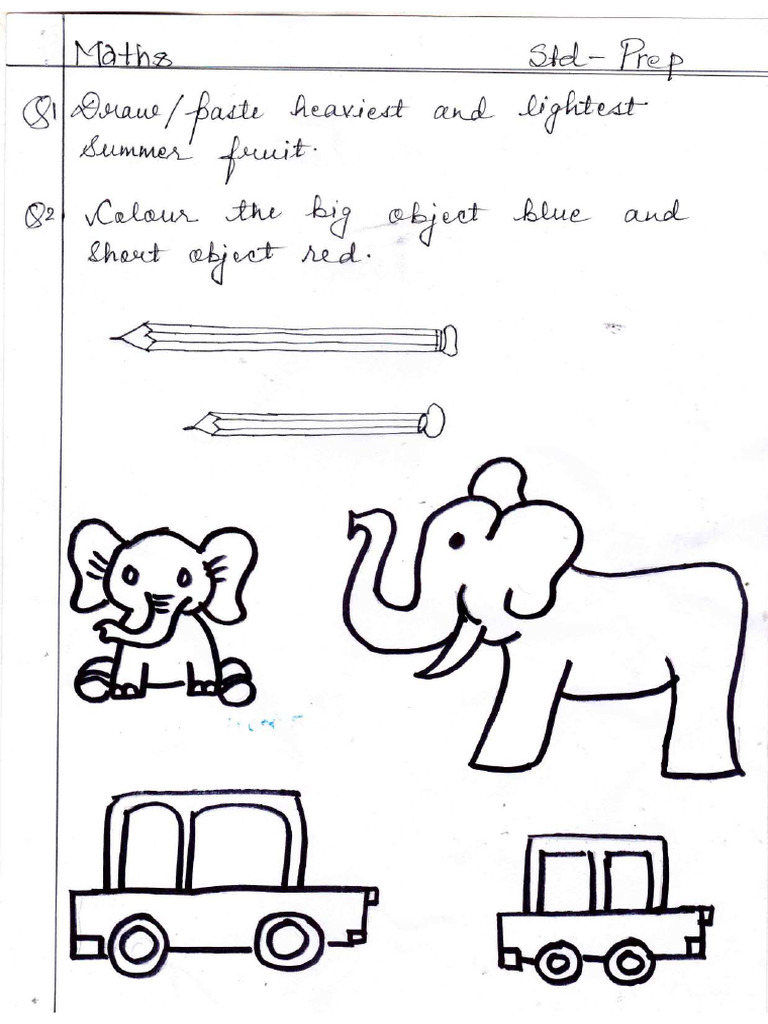 Maths Std- Prep
Q1 Draw/paste heaviest and lightest
summer fruit.
Q2 Colour the big object blue and
short object red.